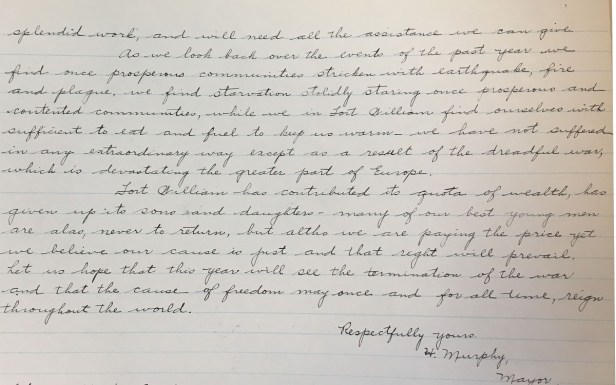 splendid work, and will need all the assistance we can give
As we look back over the events of the past year we
find once prosperous communities stricken with earthquake, fire
and plague, we find starvation stolidly staring once prosperous and
contented communities, while we in Fort William find ourselves with
sufficient to eat and fuel to keep us warm - we have not suffered
in any extraordinary way except as a result of the dreadful war,
which is devastating the greater part of Europe.
Fort William has contributed its quota of wealth, has
given up its sons and daughters - many of our best young men
are alas, never to return, but altho we are paying the price yet
we believe our cause is just and that right will prevail.
Let us hope that this year will see the termination of the war
and that the cause of freedom may once and for all time, reign
throughout the world.
Respectfully yours
H. Murphy,
Mayor